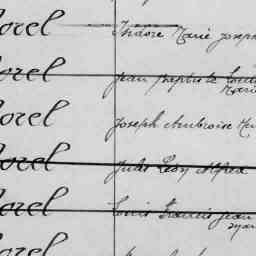 orel Isidore Marie Joseph
orel Jean Baptiste Louis
Marie
orel Joseph Ambroise
orel Jules Léon Alfred
orel Louis Francis Jean
orel